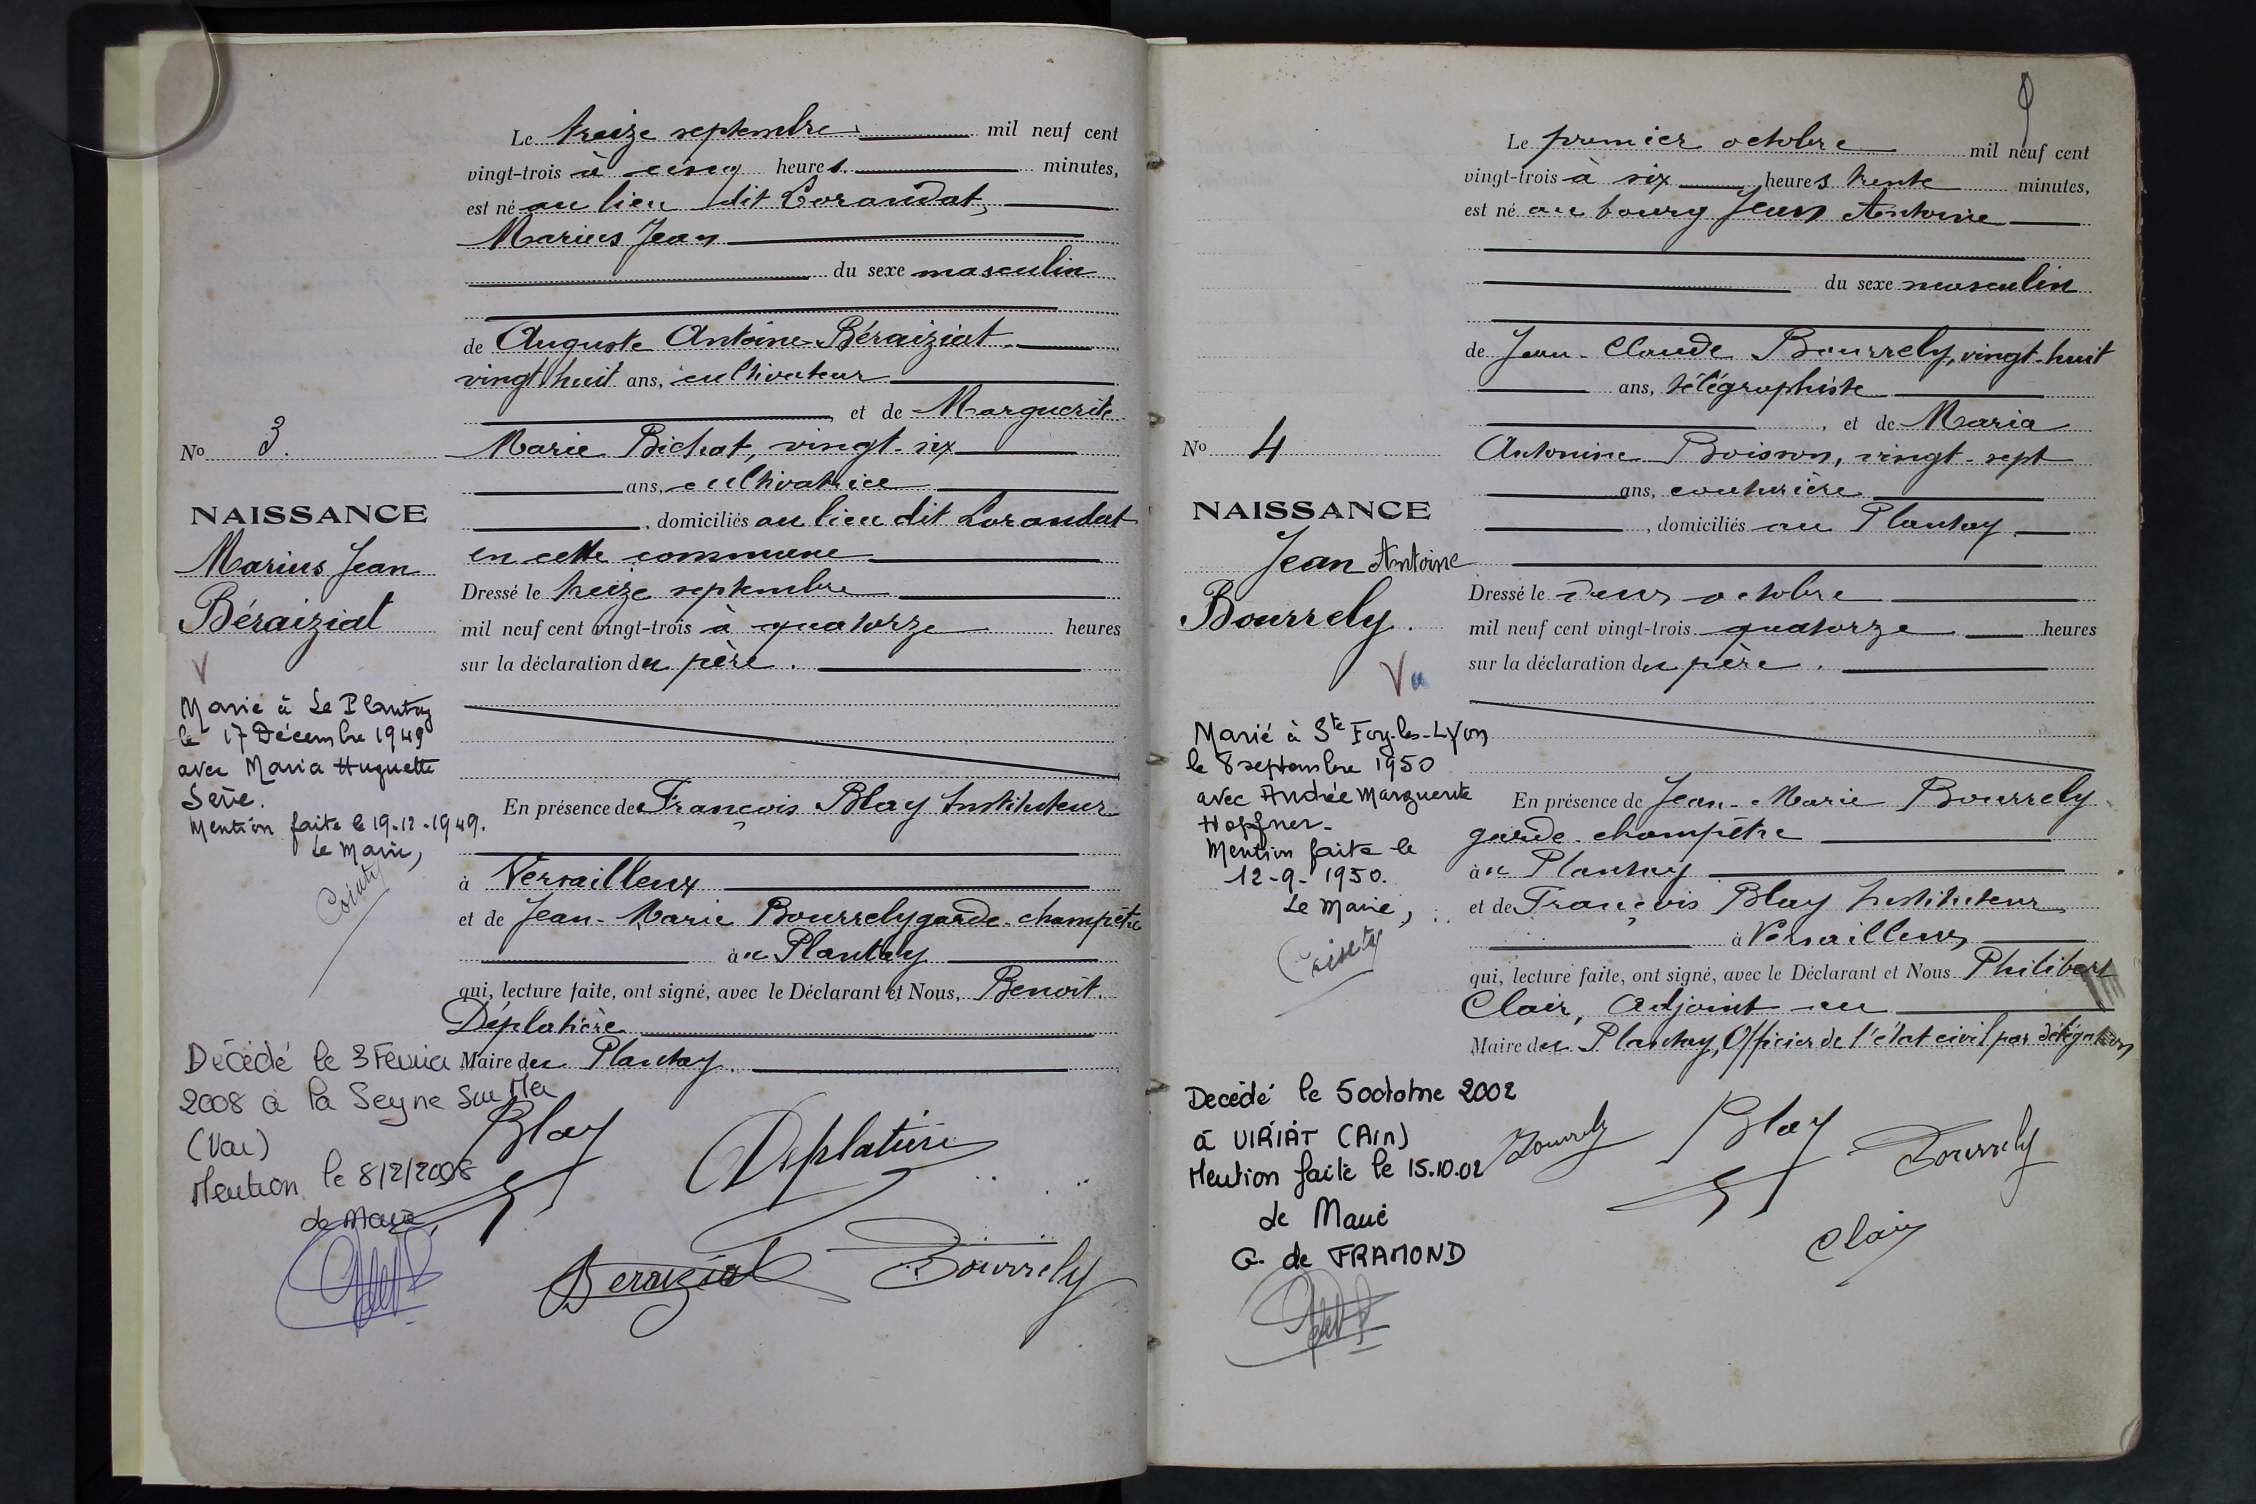 Le treize septembre mil neuf cent
vingt-trois à cinq heures minutes,
est né au lieu dit Lorandat,
Marius Jean
du sexe masculin
de Auguste Antoine Béraiziat
vingt huit ans, cultivateur
et de Marguerite
No 3.
Marie Bichat, vingt-six
ans, cultivatrice
NAISSANCE
, domiciliés au lieu dit Lorandat
en cette commune
Marius Jean
Béraiziat
Dressé le treize septembre
mil neuf cent vingt-trois à quatorze heures
sur la déclaration du père.
V
Marié à Le Plantay
le 17 Décembre 1949
avec Maria Huguette
Mention faite le 19-12-1949.
Le Maire,
En présence de François Blay Instituteur
à Versailleux
et de Jean-Marie Bourrely garde-champêtre
au Plantay
qui, lecture faite, ont signé, avec le Déclarant et Nous, Benoît
Déplatière
Maire du Plantay.
Décédé le 3 Février
2008 à la Seyne Sur Mer
(Var)
Mention le 8/2/2008
le Maire,
Blay
Déplatière
Beraiziat
Bourrely
9
Le premier octobre mil neuf cent
vingt-trois à six heures trente minutes,
est né au bourg Jean Antoine
du sexe masculin
de Jean-Claude Bourrely, vingt-huit
ans, télégraphiste
, et de Maria
No 4
Antonine Boisson, vingt-sept
ans, couturière
NAISSANCE
, domiciliés au Plantay
Jean Antoine
Bourrely.
Dressé le deux octobre
mil neuf cent vingt-trois quatorze heures
sur la déclaration du père.
Vu
Marié à Ste Foy-les-Lyon
le 8 septembre 1950
avec Andrée Marguerite
Hopfner-
Mention faite le
12-9-1950.
Le Maire,
En présence de Jean-Marie Bourrely
garde-champêtre
au Plantay
et de François Blay Instituteur
à Versailleux
qui, lecture faite, ont signé, avec le Déclarant et Nous Philibert
Clair, Adjoint au
Maire du Plantay, Officier de l'état civil par délégation
Decédé le 5 octobre 2002
à VIRIAT (Ain)
Mention faite le 15.10.02
le Maire
G. de FRAMOND
Bourrely
Blay
Bourrely
Clair